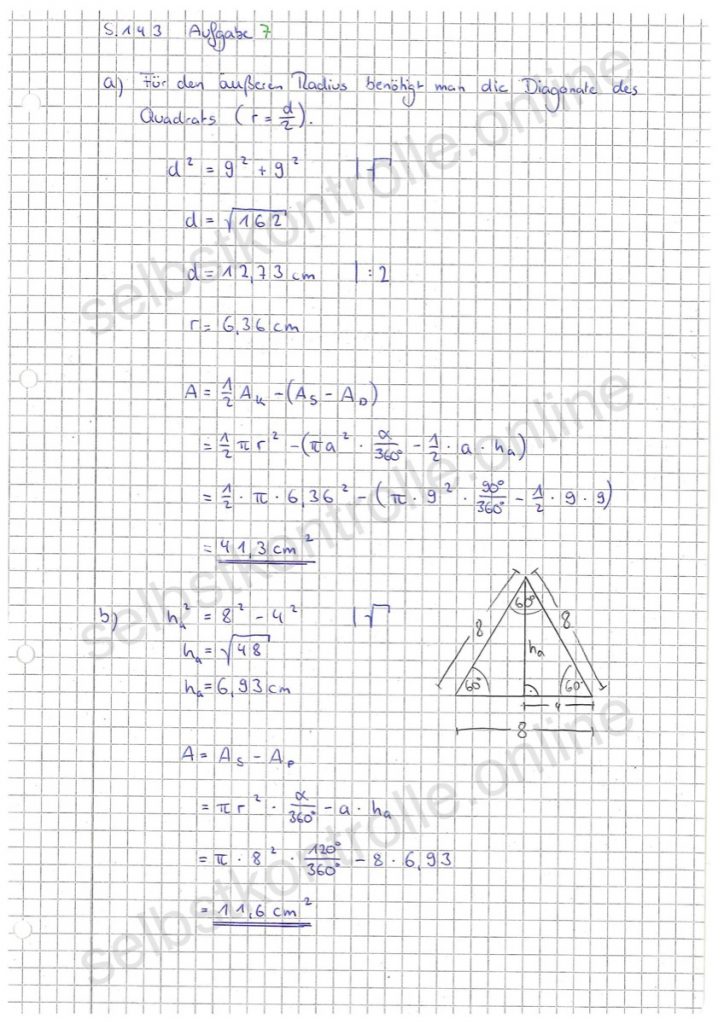 S. 143 Aufgabe 7
a) Für den äußeren Radius benötigt man die Diagonale des
Quadrats (r = d/2).
d² = 9² + 9² | √
d = √162
d = 12,73 cm | : 2
r = 6,36 cm
A = 1/2 A_K − (A_S − A_D)
= 1/2 π r² − (π a² · α/360° − 1/2 · a · h_a)
= 1/2 · π · 6,36² − (π · 9² · 90°/360° − 1/2 · 9 · 9)
= 41,3 cm²
b) h_a² = 8² − 4² | √
h_a = √48
h_a = 6,93 cm
60°
8
8
h_a
60°
60°
4
8
A = A_S − A_P
= π r² · α/360° − a · h_a
= π · 8² · 120°/360° − 8 · 6,93
= 11,6 cm²
selbstkontrolle.online
selbstkontrolle.online
selbstkontrolle.online